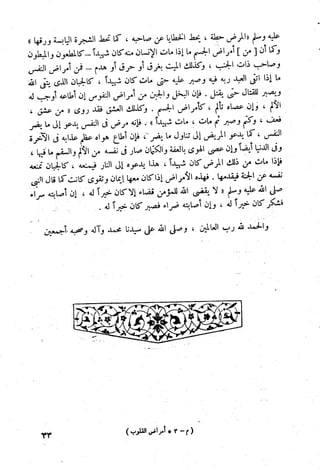 عليه وسلم «المرض حطة ، يحط الخطايا عن صاحبه ، كما تحط الشجرة اليابسة ورقها »
وكما أن [ من ] أمراض الجسم ما إذا مات الإنسان منه كان شهيداً ــ كالمطعون والمبطون
وصاحب ذات الجنب ، وكذلك الميت بغرق أو حرق أو هدم ــ فمن أمراض النفس
ما إذا اتقى العبد ربه فيه وصبر عليه حتى مات كان شهيداً ، كالجبان الذى يتقى الله
ويصبر للقتال حتى يقتل . فإن البخل والجبن من أمراض النفوس إن أطاعه أوجب له
الألم ، وإن عصاه تألم ، كأمراض الجسم . وكذلك العشق فقد روى « من عشق ،
فعف ، وكتم وصبر ثم مات ، مات شهيداً » . فإنه مرض فى النفس يدعو إلى ما يضر
النفس ، كما يدعو المريض إلى تناول ما يضر ، فإن أطاع هواه عظم عذابه فى الآخرة
وفى الدنيا أيضاً وإن عصى الهوى بالعفة والكتمان صار فى نفسه من الألم والسقم ما فيها ،
فإذا مات من ذلك المرض كان شهيداً ، هذا يدعوه إلى النار فيمنعه ، كالجبان تمنعه
نفسه عن الجنة فيقدمها . فهذه الأمراض إذا كان معها إيمان وتقوى كانت كما قال النبى
صلى الله عليه وسلم « لا يقضى الله للمؤمن قضاء إلا كان خيراً له ، إن أصابته سراء
فشكر كان خيراً له ، وإن أصابته ضراء فصبر كان خيراً له .
والحمد لله رب العالمين ، وصلى الله على سيدنا محمد وآله وصحبه أجمعين
٣٣
( م ــ ٣ * أمراض القلوب )